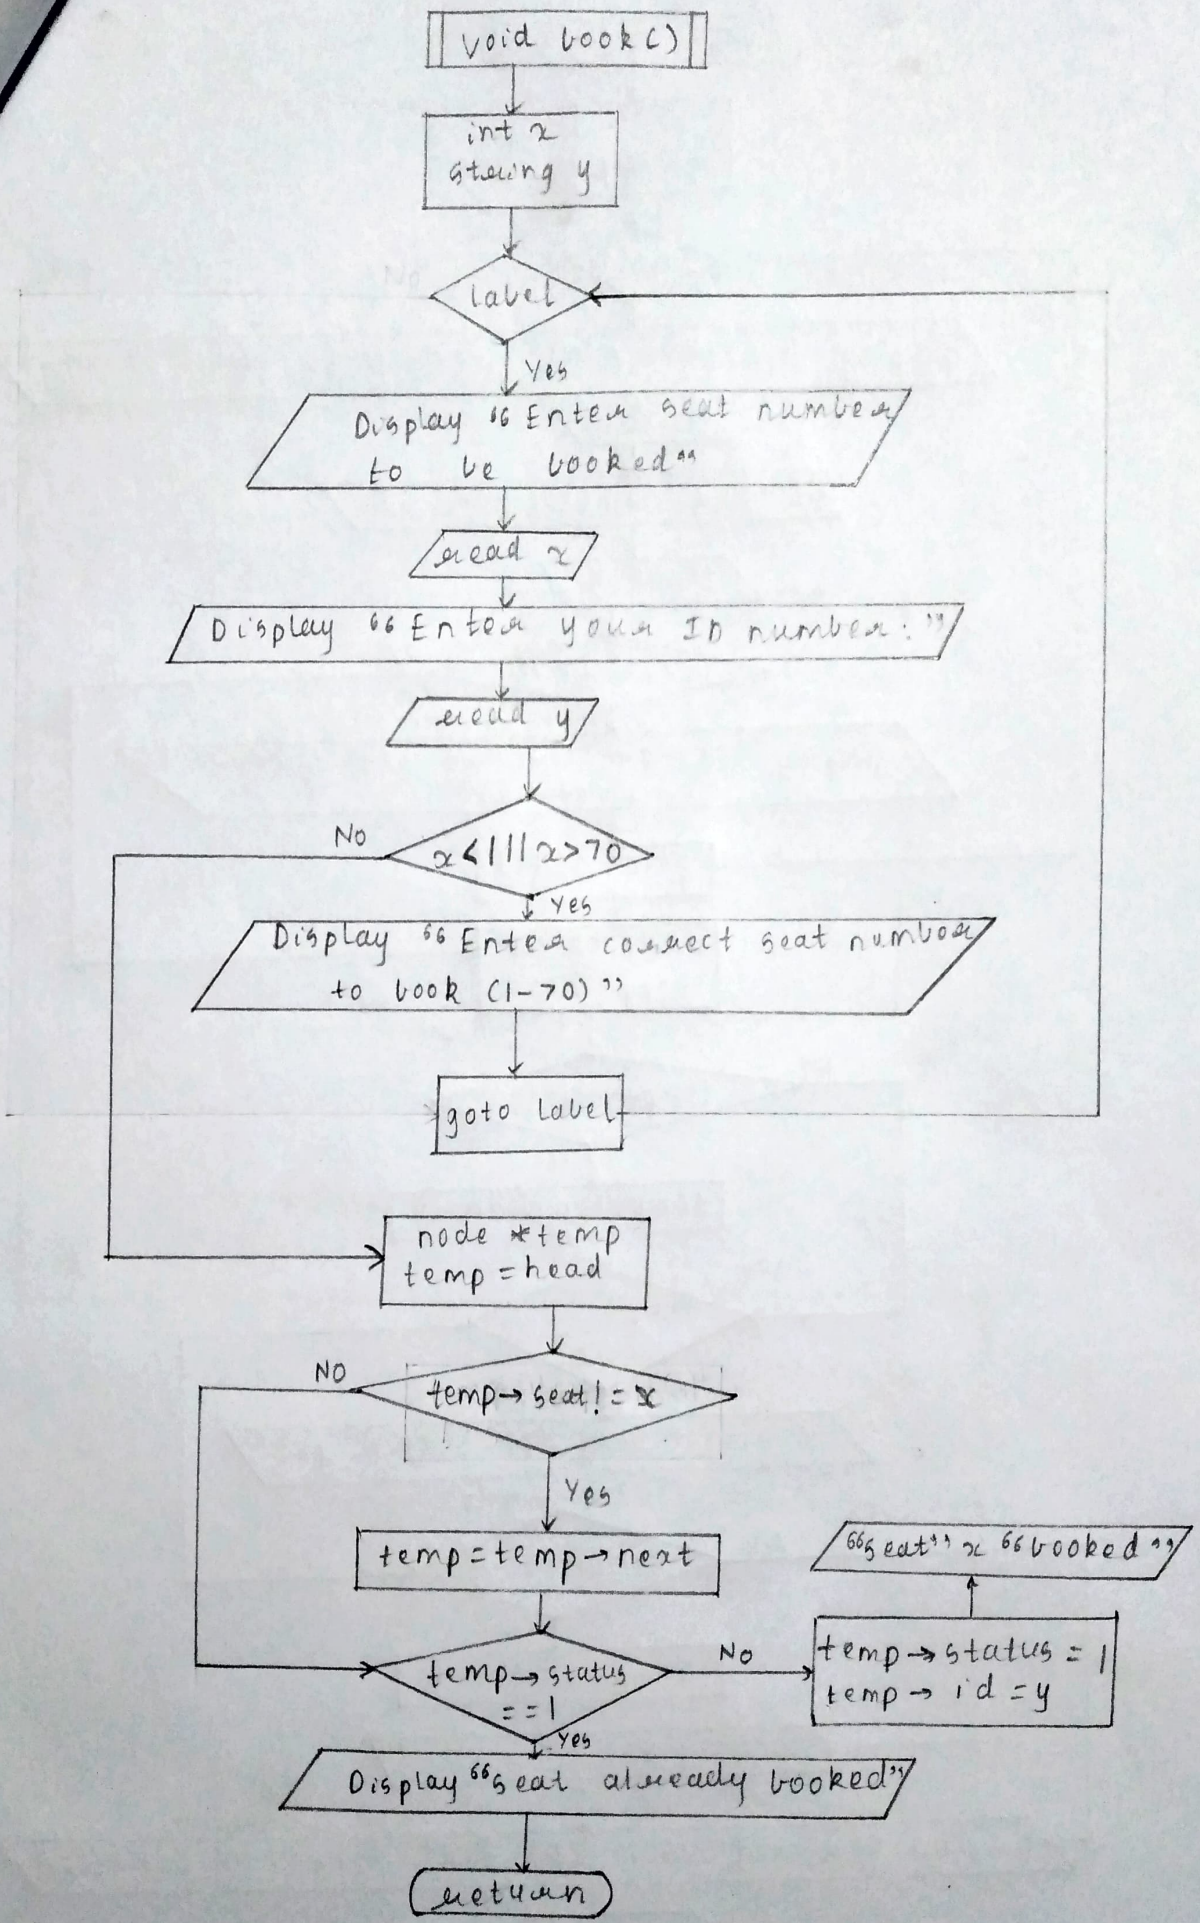 void book()
int x
string y
label
Yes
Display “Enter seat number
to be booked”
read x
Display “Enter your ID number:”
read y
No
x<1||x>70
Yes
Display “Enter correct seat number
to book (1-70)”
goto label
node *temp
temp=head
NO
temp→seat!=x
Yes
temp=temp→next
“seat” x “booked”
temp→status
==1
No
temp→status=1
temp→id=y
Yes
Display “seat already booked”
return